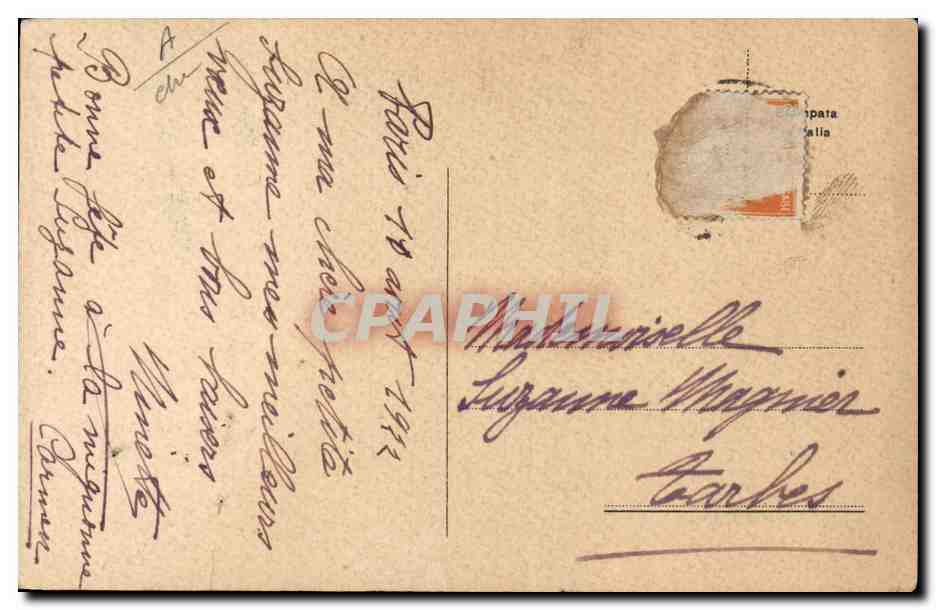 Paris 10 août 1912
A ma chère petite
Suzanne mes meilleurs
vœux et bons baisers
Ninette
Bonne fête à la mignonne
petite Suzanne.
Carmen
Stampata
Italia
Mademoiselle
Suzanne Magnier
Tarbes
CPAPHIL